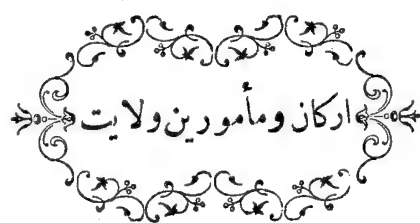 اركان ومأمورين ولايت